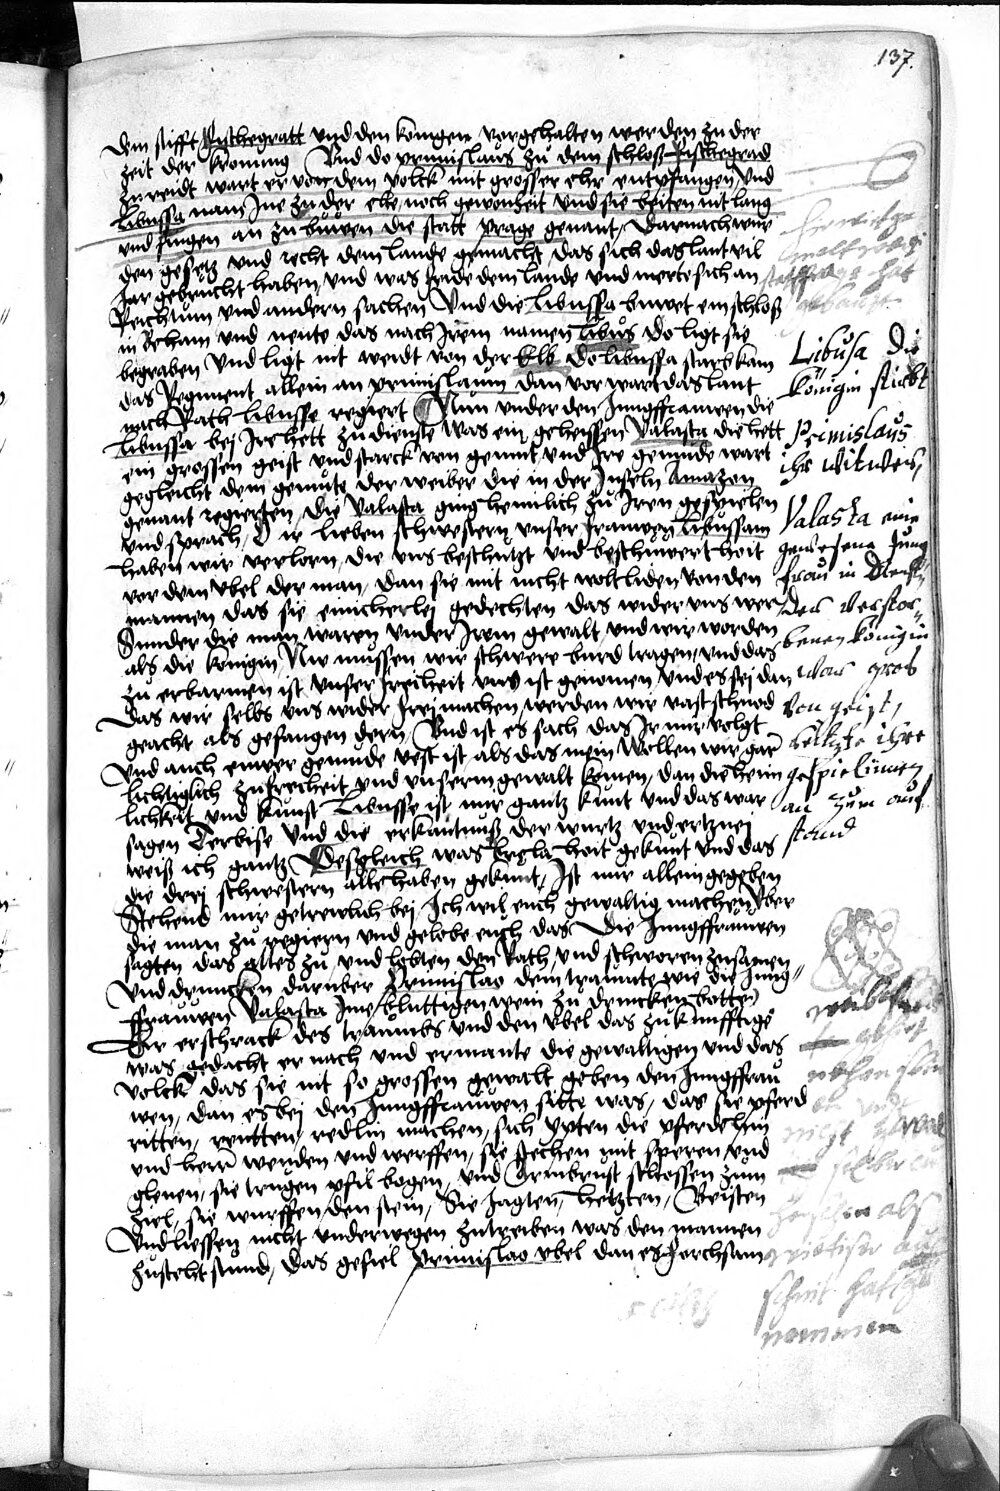 137.
dem stifft Wischegratt vnd den konigen vorgehalten werden zu der
zeit der kronung Vnd do primislaus zu dem schloß Wischegrad
zu reidt wart er von dem volck mit grosser ehr entpfangen, vnd
Libussa nam Jne zu der ehe noch gewonheit vnd sie beiten nit lang
vnd fingen an zu buwen die statt Prage genant, Darnach wur
den gesetz vnd recht dem lande gemacht das sich das lant vil
Jar gebrucht haben, vnd was fride dem lande vnd merte sich an
Reichtum vnd andern sachen Vnd die Libussa buwet ein schloß
in Beham vnd nente das nach Jrem namen Libus do ligt sie
begraben Vnd ligt nit weidt von der Elb Do Libussa starb kam
das Regiment allein an primislaum dan vor wart das lant
nach Rath Libusse regiert Nun vnder den Jungffrauwen die
Libussa bej Jre hett zu dienste was ein geheissen Valasca die hett
ein grossen geist vnd starck von gemut, vnd Jre gemude wart
gegleicht dem gemute der weiber die in der Jnseln Amazon
genant regierten, Die Valasca ging heimlich zu Jren gespielen
vnd sprach, O ir lieben schwestern vnser frauwen Libussam
haben wir verlorn, die vns beschutzt vnd beschirmet hoit
vor dem vbel der man, dan sie mit nicht wolt liden von den
mannen das sie einicherlej gedechten das wider vns wer
Sunder die man waren vnder Jrem gewalt vnd wir worden
als die konigin Nw mussen wir schwere burd tragen, vnd das
zu erbarmen ist vnser freiheit vns ist genomen vnd es sej dan
Das wir selbs vns wider frej machen, werden wir vast schnod
geacht als gefangen dern, Vnd ist es sach das Jr mir volgt
Vnd auch euwer gemude vest ist, als das mein Wollen wir gar
lichtiglich zu freiheit vnd vnserm gewalt komen, dan die heim
lichkeit vnd kunst Libusse ist mir gantz kunt vnd das war
sagen Terbise Vnd die erkantnuß der wurtz vnd ertznei
weiß ich gantz Desgleich was Brela hoit gekunt vnd das
die drej schwestern alle haben gekunt, Jst mir allein gegeben
Stehend mir getrewlich bej Jch wil euch gewaltig machen vber
die man zu regiern vnd gelobe euch das Die Jungffrauwen
sagten das alles zu, vnd lobten den Rath, vnd schworen zusamen,
Vnd druncken daruber Primislao dem traumte wie die Jung
ffrauwen Valasca Jme bluttigen wein zu drincken botte,
Er erschrack des traumbs vnd den vbel das zukunfftig
was gedacht er nach vnd ermante die gewaltigen vnd das
volck das sie nit so grossen gewalt geben den Jungffrau
wen, dan es bej den Jungffrauwen sitte was, das sie pferd
ritten, rentten, redlin machen, sich vpten die pferde hin
vnd herr wenden vnd werffen, sie stechen mit speren vnd
glenen, sie trugen pfil bogen, vnd Armbrust schossen zum
ziel, sie wurffen den stein, Sie Jagten, hetzten, Beisten
Vnd liessen nicht vnderwegen zutreiben was den mannen
zusteht stund, Das gefiel Primislao vbel dan es forchsam
Libusa die
königin stirbt
Primislaus
ihr witwer,
Valasca eine
gewesene Jung
frau in dienst
der verstor
benen königin
war gros
von geist,
ihre
gespielinnen
an zum auf
stand
nicht
als
schrit hat
nommen